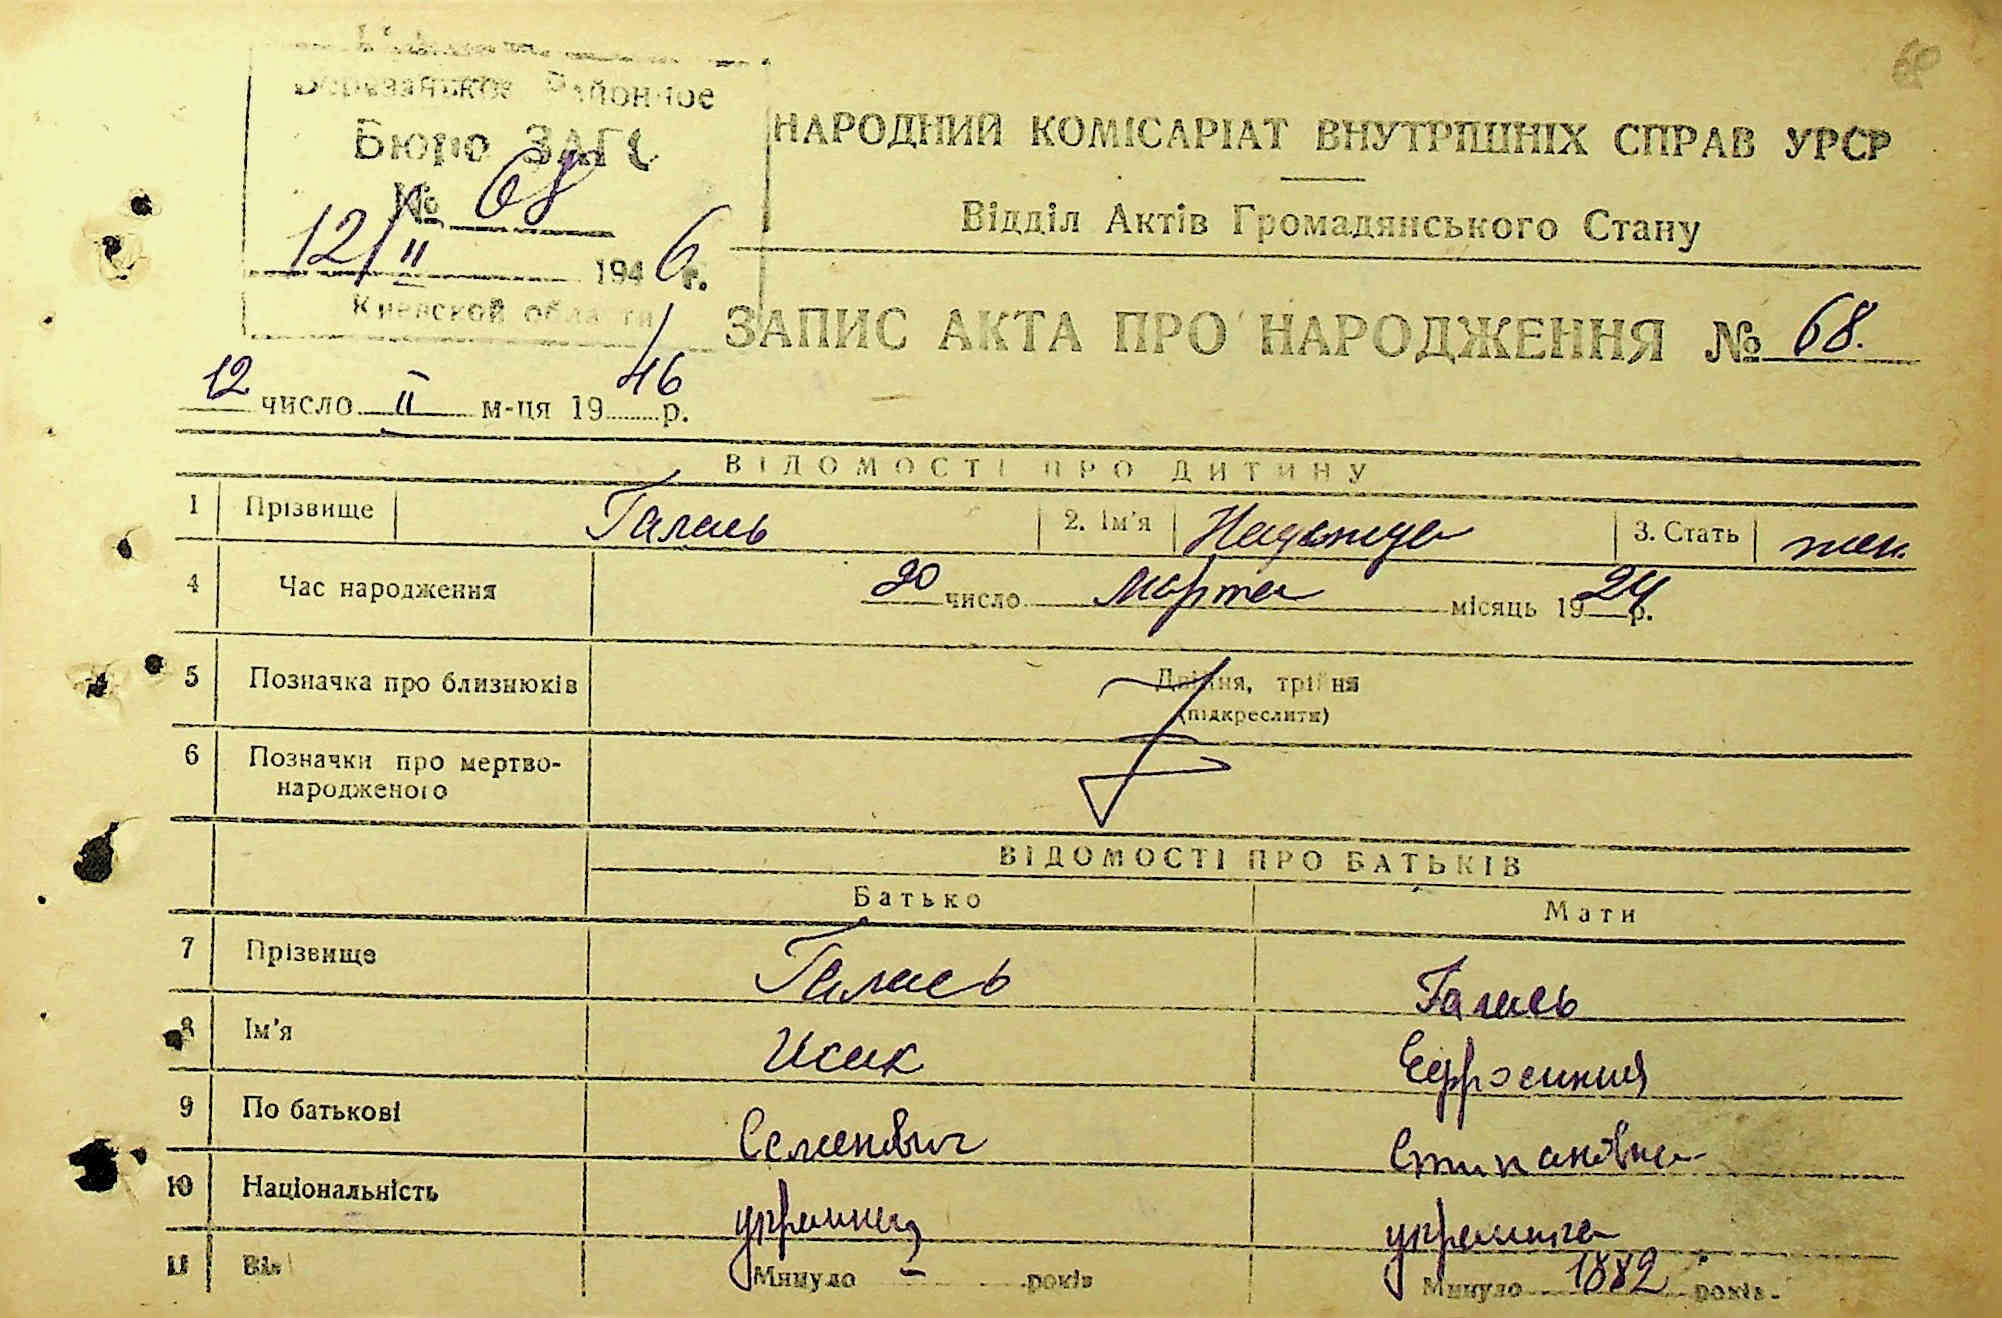 60
Районное
Бюро ЗАГС
№ 68
12/II 1946 г.
Киевской области
НАРОДНИЙ КОМІСАРІАТ ВНУТРІШНІХ СПРАВ УРСР
Відділ Актів Громадянського Стану
ЗАПИС АКТА ПРО НАРОДЖЕННЯ № 68.
12 число II м-ця 1946 р.
ВІДОМОСТІ ПРО ДИТИНУ
1 Прізвище Галась 2. Ім'я Надежда 3. Стать жен.
4 Час народження 20 число марта місяць 1924 р.
5 Позначка про близнюків Двійня, трійня
(підкреслити)
6 Позначки про мертво-
народженого
ВІДОМОСТІ ПРО БАТЬКІВ
Батько Мати
7 Прізвище Галась Галась
8 Ім'я Исак Ефросиния
9 По батькові Семенович Стипановна
10 Національність украинец украинка
11 Вік Минуло – років Минуло 1882 років.